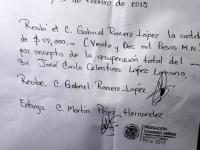 de Febrero de 2015
Recibí el C. Gabriel Romero López la cantidad
de $ 22,000.- (Veinte y Dos mil Pesos M.N.)
por concepto de la recuperación total del
Sr. José Carlo Celestino López Lozcano.
Recibe. C. Gabriel Romero López
Entrega C. Martín Pérez Hernandez
DELEGACIÓN
DOMINGO ARENAS